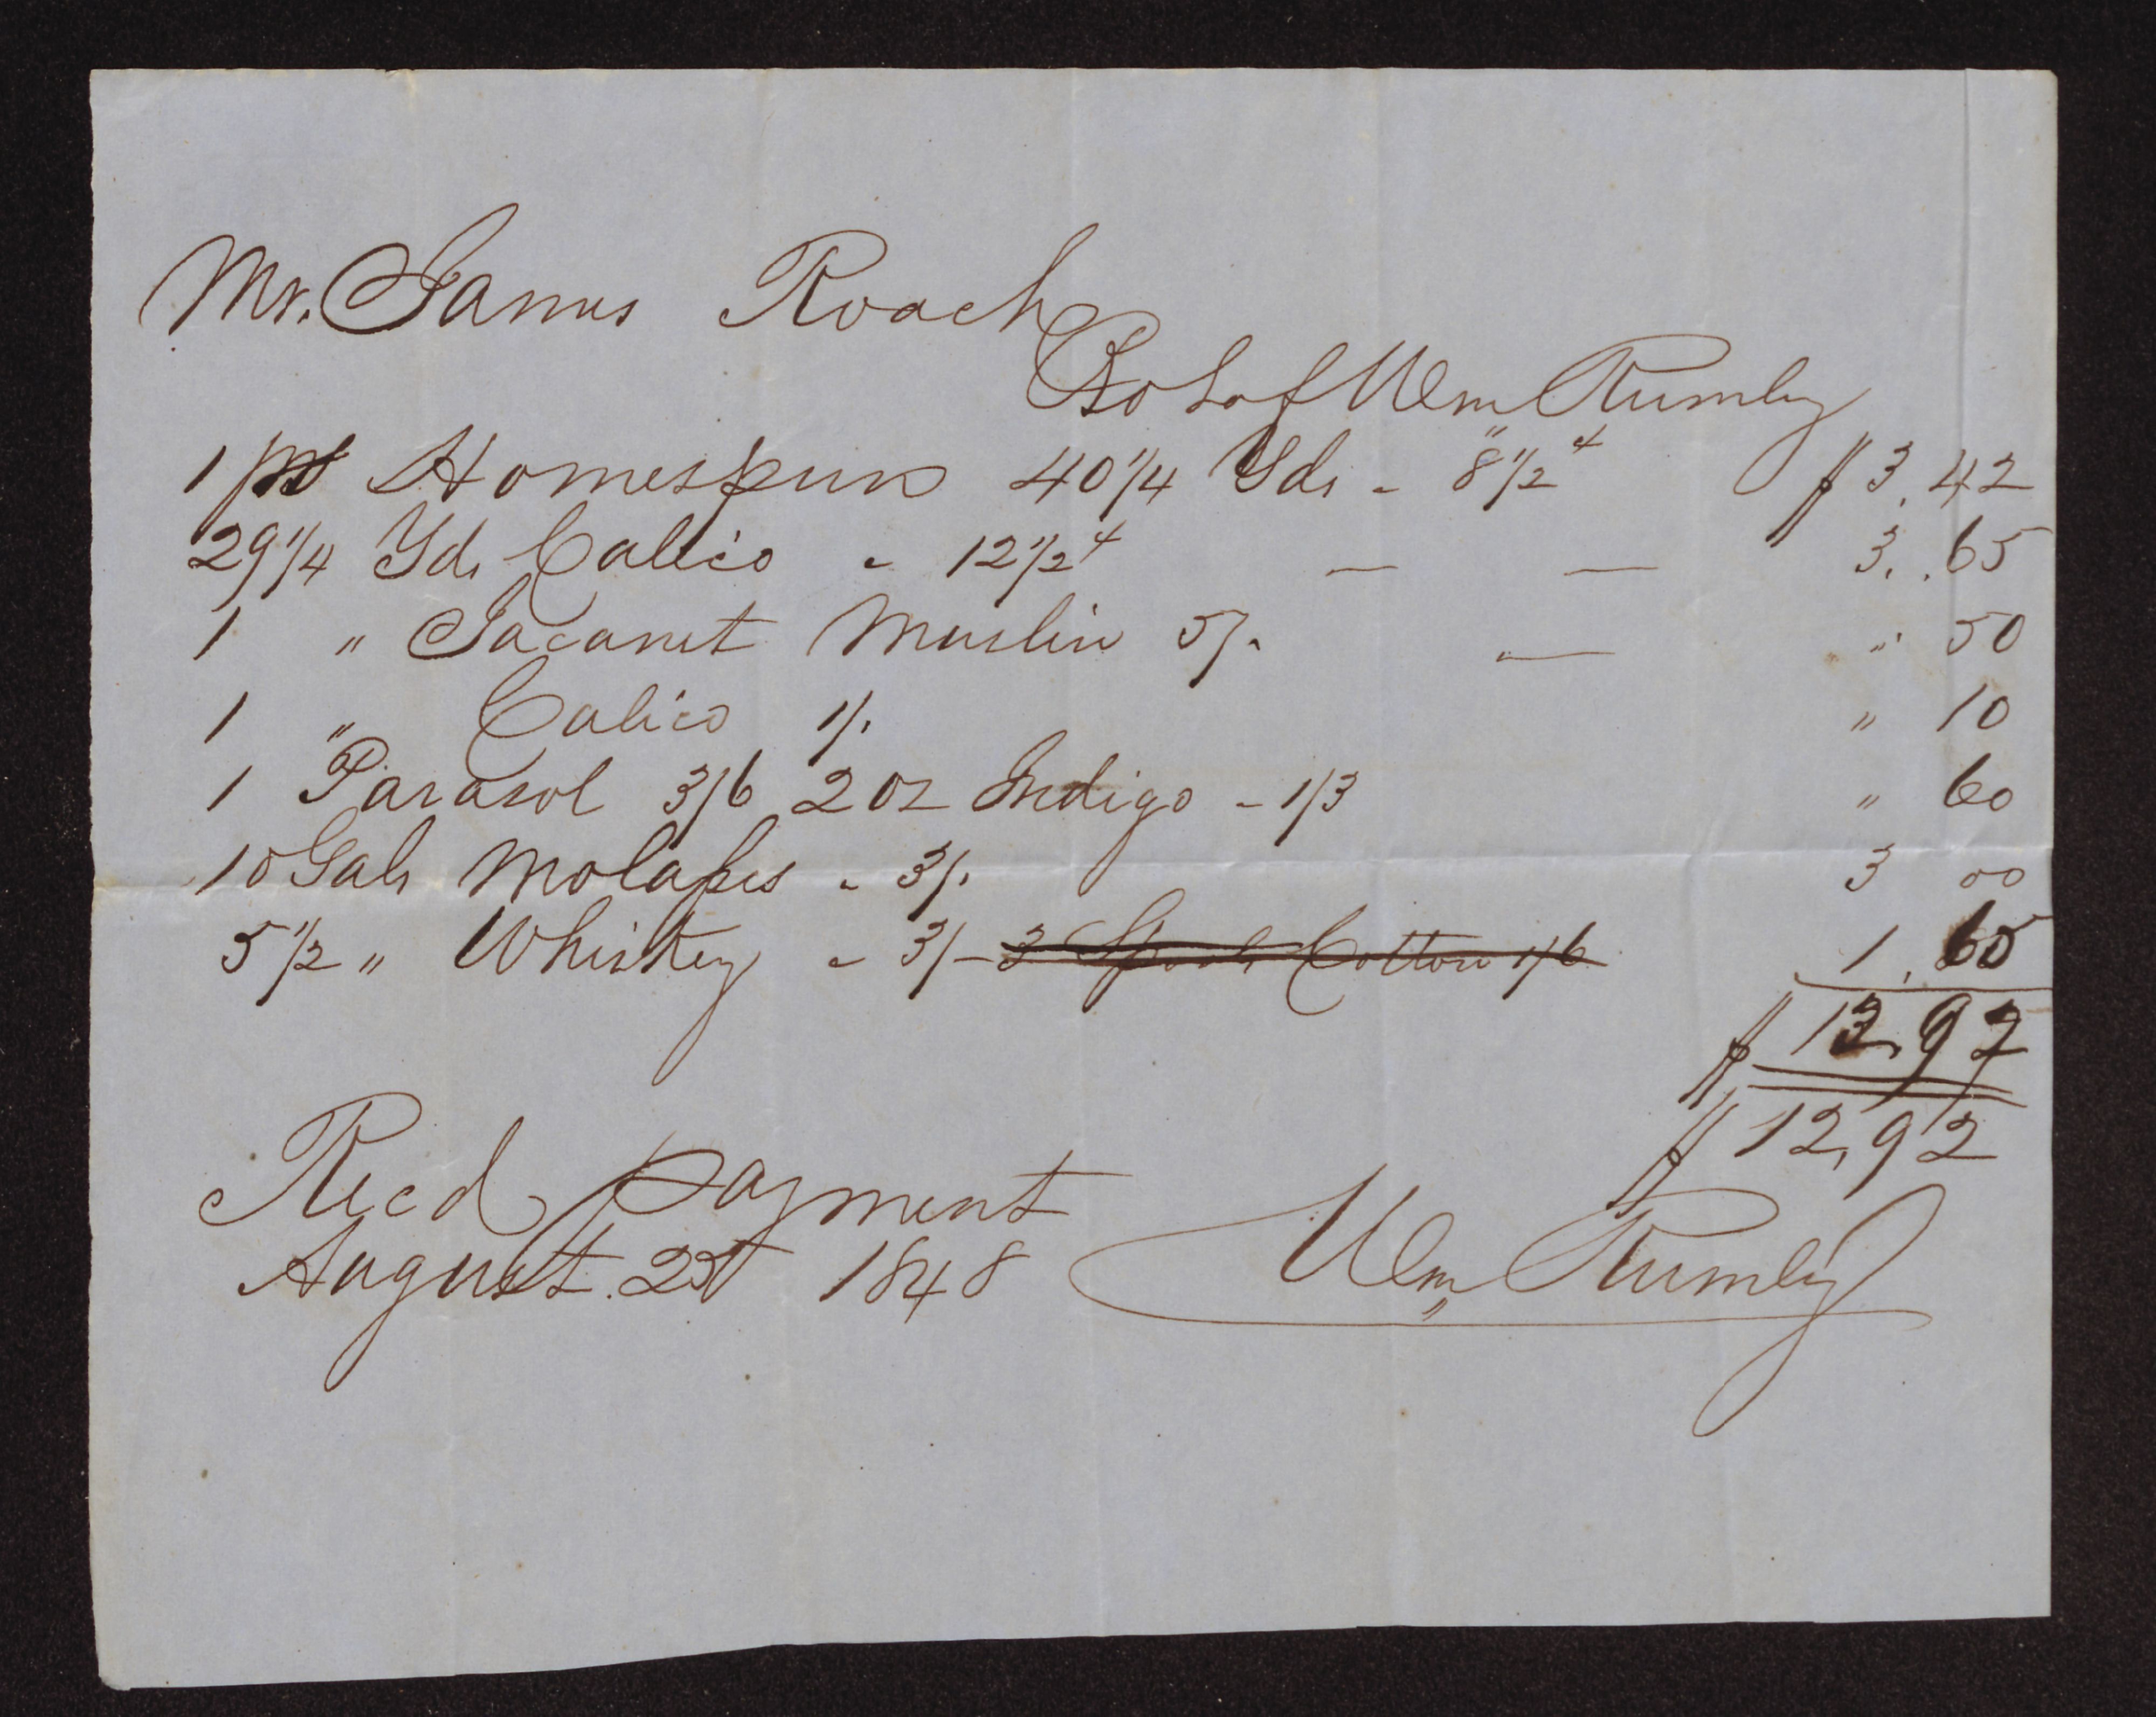 Mr. James Roach
Bot of Wm Rumley
1 ps Homespun 40 1/4 Yds - 8 1/2 ¢ $ 3.42
29 1/4 Yds Calico - 12 1/2 ¢ — — 3.65
1 " Jaconet Muslin 5/. — " 50
1 " Calico 1/. " 10
1 Parasol 3/6 2 oz Indigo - 1/3 " 60
10 Gals Molasses - 3/. 3 00
5 1/2 " Whiskey - 3/- 3 Spools Cotton 1/6 1.65
$ 12.92
$ 12,92
Recd payment
August. 1848 Wm Rumley